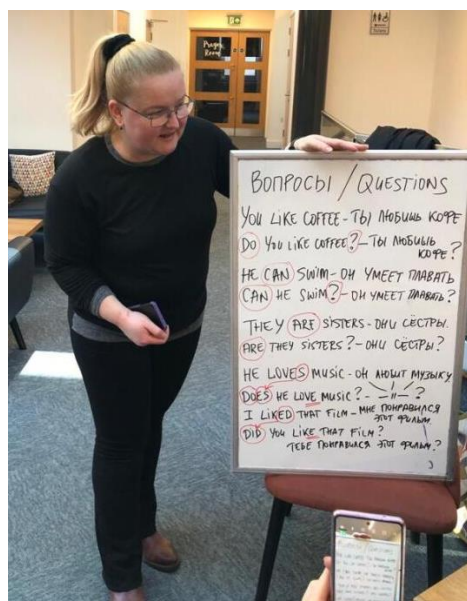 Prayer
Room
ВОПРОСЫ / QUESTIONS
YOU LIKE COFFEE - ТЫ ЛЮБИШЬ КОФЕ
DO YOU LIKE COFFEE? - ТЫ ЛЮБИШЬ
КОФЕ?
HE CAN SWIM - ОН УМЕЕТ ПЛАВАТЬ
CAN HE SWIM? - ОН УМЕЕТ ПЛАВАТЬ?
THEY ARE SISTERS - ОНИ СЁСТРЫ.
ARE THEY SISTERS? - ОНИ СЁСТРЫ?
HE LOVES MUSIC - ОН ЛЮБИТ МУЗЫКУ
DOES HE LOVE MUSIC? - — 〃 — ?
I LIKED THAT FILM - МНЕ ПОНРАВИЛСЯ
ЭТОТ ФИЛЬМ
DID YOU LIKE THAT FILM?
ТЕБЕ ПОНРАВИЛСЯ ЭТОТ ФИЛЬМ?